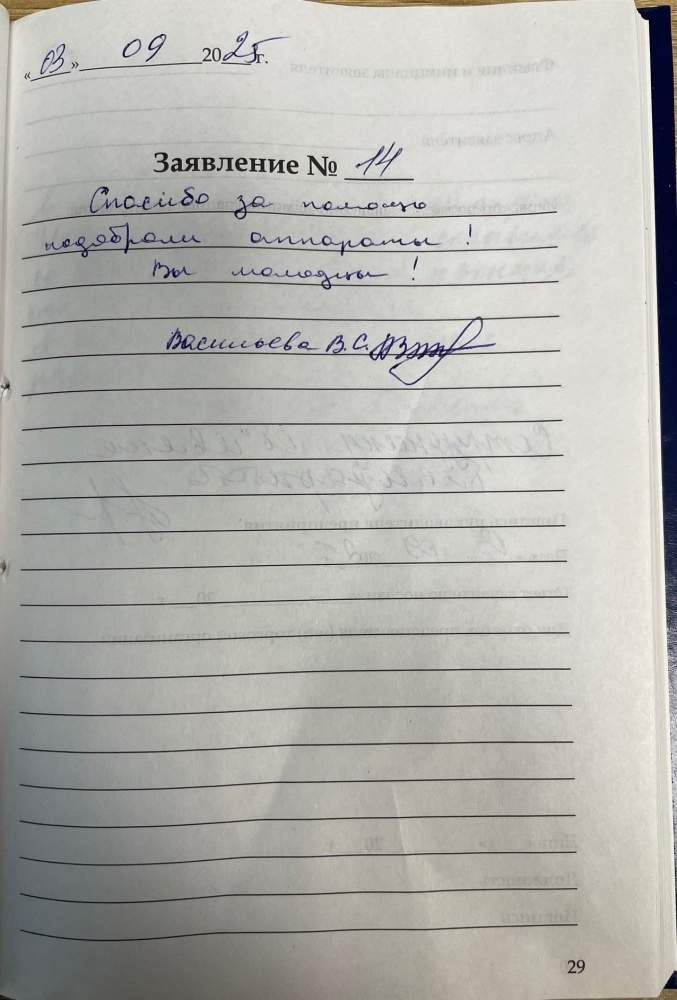 «03» 09 2025г.
Заявление № 14
Спасибо за помощь
подобрали аппараты!
Вы молодцы!
Васильева В.С.
29